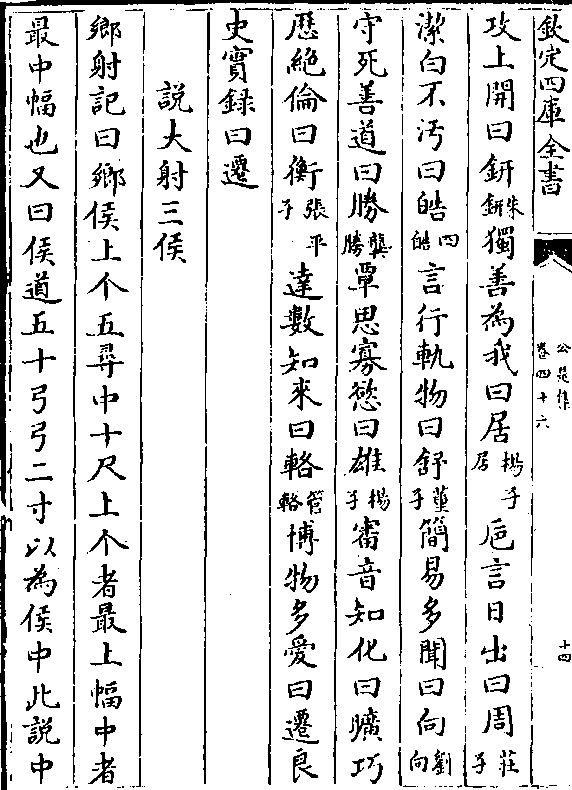 欽定四庫全書
公是集
卷四十六
十四
攻上開曰鈃朱鈃獨善為我曰居楊子居巵言日出曰周莊子
潔白不汚曰皓四皓言行軌物曰舒董子簡易多聞曰向劉向
守死善道曰勝龔勝覃思寡慾曰雄楊子審音知化曰曠巧
歴絶倫曰衡張平子達數知來曰輅管輅博物多愛曰遷良
史實録曰遷
說大射三侯
鄉射記曰鄉侯上个五尋中十尺上个者最上幅中者
最中幅也又曰侯道五十弓弓二寸以為侯中此說中